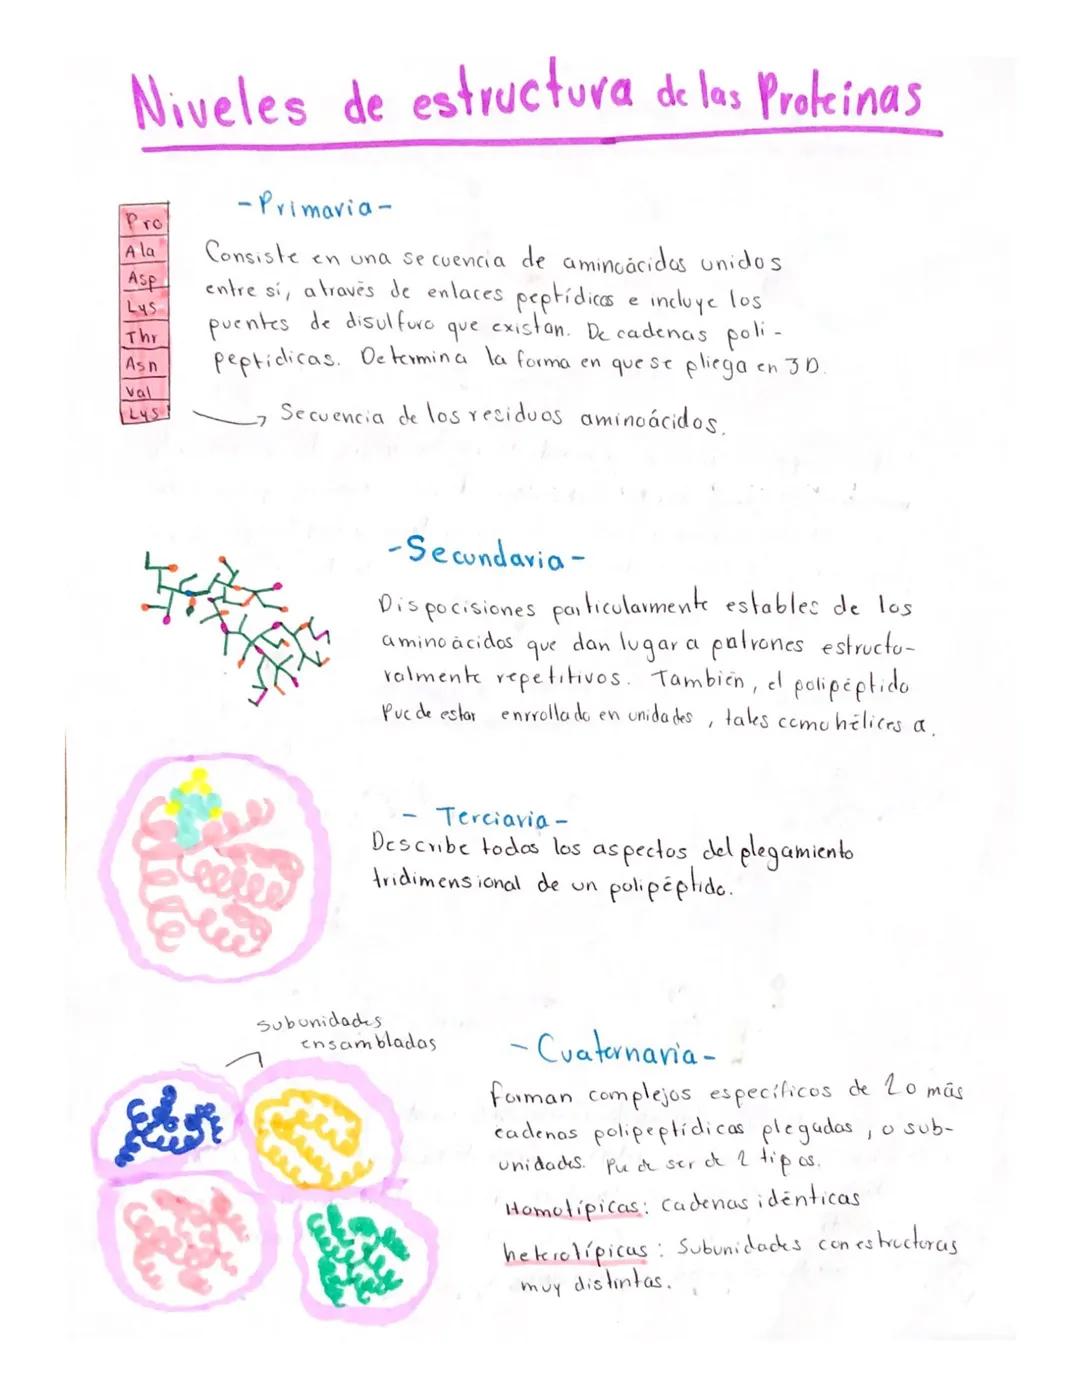 Niveles de estructura de las Proteinas
-Primaria-
Pro
Ala
Asp
Lys
Thr
Asn
Val
Lys
Consiste en una secuencia de aminoácidos unidos
entre sí, através de enlaces peptídicos e incluye los
puentes de disulfuro que existan. De cadenas poli-
peptidicas. Determina la forma en que se pliega en 3D.
Secuencia de los residuos aminoácidos.
-Secundaria-
Dispocisiones particularmente estables de los
aminoácidos que dan lugar a patrones estructu-
ralmente repetitivos. También, el polipéptido
Puede estar enrrollado en unidades, tales como hélices a.
- Terciaria-
Describe todos los aspectos del plegamiento
tridimensional de un polipéptido.
subunidades
ensambladas
-Cuaternaria-
forman complejos específicos de 2 o más
cadenas polipeptídicas plegadas, o sub-
unidades. Puede ser de 2 tipos.
Homotípicas: cadenas idénticas
heterotípicas: Subunidades con estructuras
muy distintas.